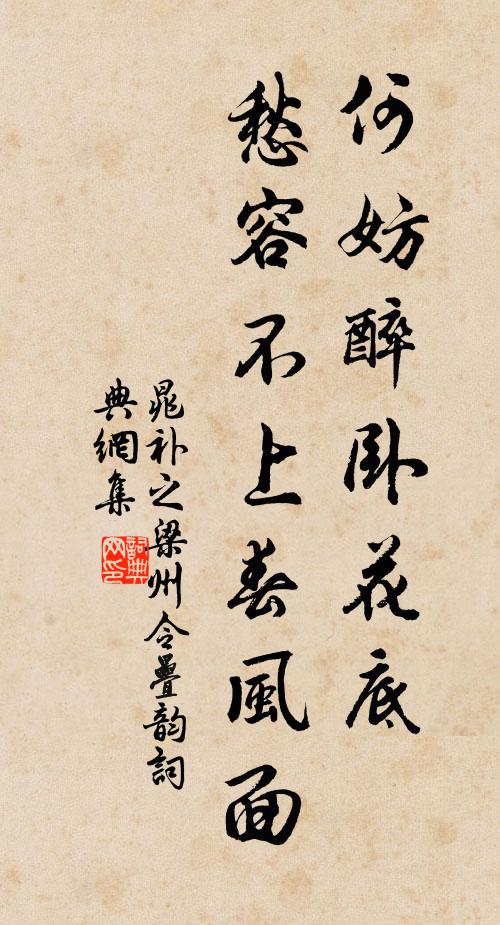 何妨醉卧花底
愁容不上春風面
晁补之梁州令疊韵詞
典網集
詞典網印